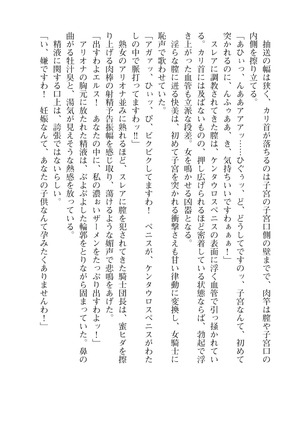 抽送の幅は狭く、カリ首が落ちるのは子宮の子宮口側の壁までで、肉竿は膣や子宮口の
内側を擦り立てる。
「あひぃっ、んああアアアッ……ひぐぅッ、ど、どうしてですのッ、子宮なんて、初めて
突かれるのに、んふっああ、き、気持ちいいですわぁぁぁ！」
スレアに調教されてきた膣は、ケンタウロスペニスの表面に浮く血管で引っ掻かれてい
る。カリ首には及ばないものの、押し広げられるほど密着している状態ならば、勃起で浮
き上がった血管も立派な段差。女を鳴かせる凶器となる。
淫らな膣に迸る快美は、初めて子宮を突かれる衝撃さえも甘い律動に変換し、女騎士に
恥声で歌わせていた。
「アガァッ、ひぃッ、び、ビクビクしてますわ！　ペニスが、ケンタウロスペニスがわた
しの中で脈打ってますわッ!!」
熟女のアリオナ並みに熟れるほど、スレアに膣を犯されてきた騎士団長は、蜜ヒダを擦
り上げる肉棒の射精予告振幅を感じ取り、蕩けるような媚声で悲鳴をあげた。
「出すわよエルス！　あなたの中に、私の濃ぉいザーメンをたっぷり出すわよッ！」
アリオナの胸元に放たれた精液は、ぷよぷよした輪郭をとりながら固まっていた。鼻の
曲がる牡汁臭と、湯気が見えそうな熱感を放っている。
精液に関する上は、誇張ではないらしい。
「い、嫌ですわ！　妊娠なんて、あなたの子供なんて孕みたくありませんわ！」